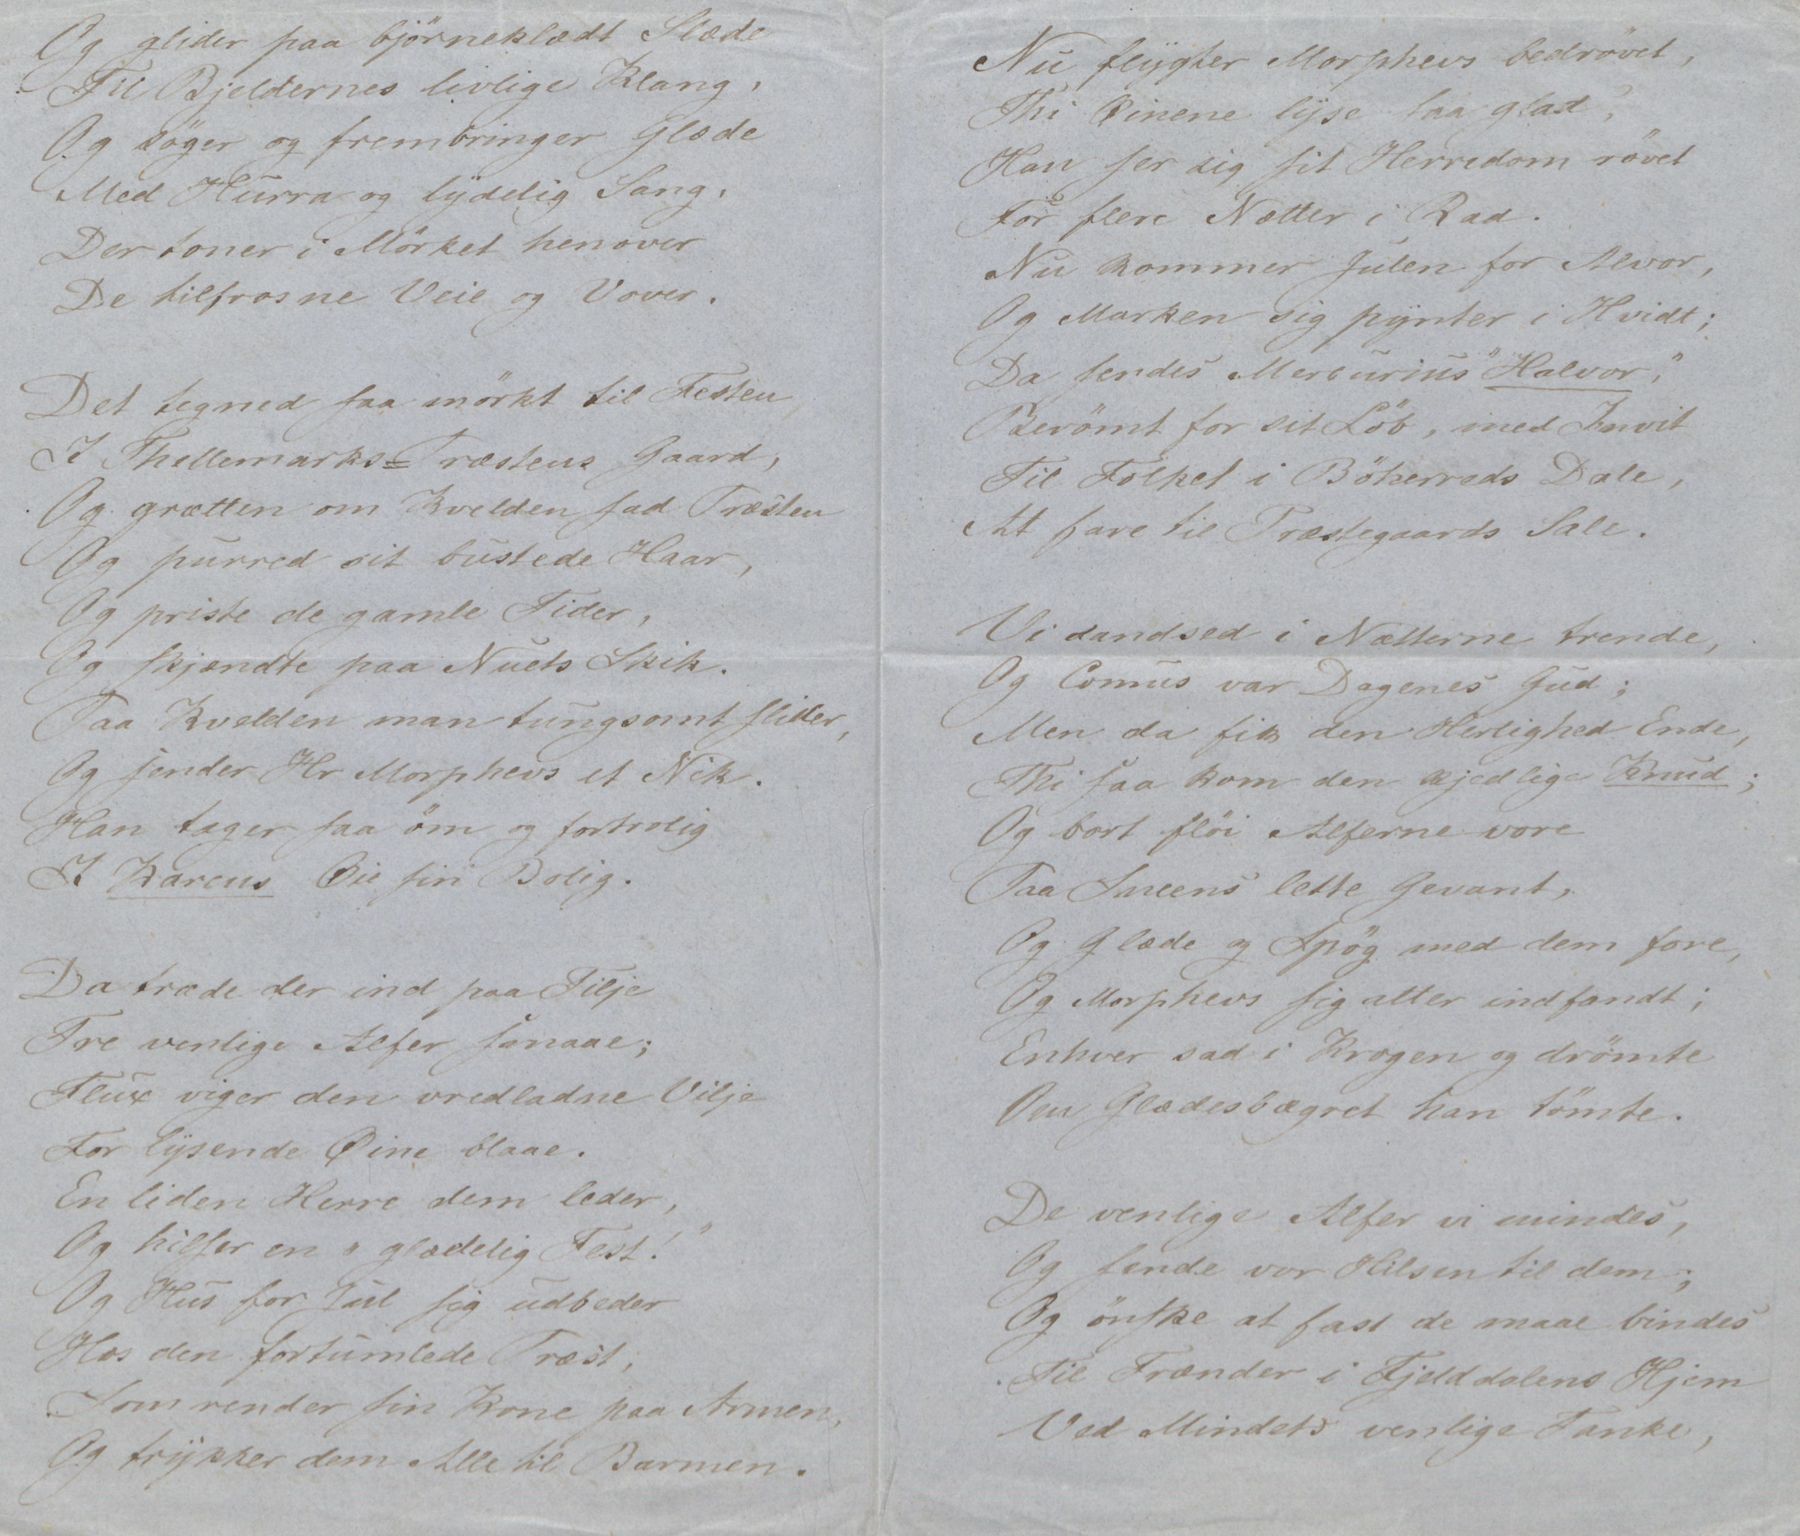 Og glider paa björneklædt Slæde
Til Bjeldernes livlige Klang,
Og söger og frembringer Glæde
Med Hurra og lydelig Sang,
Der toner i Mörket henover
De tilfrosne Veie og Vover.
Det tegned saa mörkt til Festen,
I Thellemarks=Præstens Gaard,
Og grætten om Kvelden sad Præsten
Og purred sit bustede Haar,
Og priste de gamle Tider,
Og skjændte paa Nuets Skik.
Paa Kvelden man tungsomt slider,
Og sender Hr Morphevs et Nik.
Han tager saa öm og fortrolig
I Karens Øie sin Bolig.
Da træde der ind paa Tilje
Tre venlige Alfer smaae;
Flux viger den vredladne Vilje
For lysende Øine blaae.
En liden Herre dem leder,
Og hilser en "glædelig Fest!"
Og Hus for Jul sig udbeder
Hos den fortumlede Præst,
Som render sin Kone paa Armen,
Og trykker dem Alle til Barmen.
Nu flygter Morphevs bedrövet,
Thi Øinene lyse saa glad,
Han ser sig sit Herredom rövet
For flere Nætter i Rad.
Nu kommer Julen for Alvor,
Og Marken sig pynter i Hvidt;
Da sendes Mercurius "Halvor,"
Berömt for sit Löb, med Invit
Til Folket i Böherreds Dale,
At fare til Præstegaards Sale.
Vi dandsed i Nætterne trende,
Og Comus var Dagenes Gud;
Men da fik den Herlighed Ende,
Thi saa kom den kjedlige Knud;
Og bort flöi Alferne vore
Paa Sneens lette Gevant,
Og Glæde og Spög med dem fore,
Og Morphevs sig atter indfandt;
Enhver sad i Krogen og drömte
Om Glædesbægret han tömte.
De venlige Alfer vi mindes,
Og sende vor Hilsen til dem;
Og önske at fast de maae bindes
Til Frænder i Fjelddalens Hjem
Ved Mindets venlige Tanke,